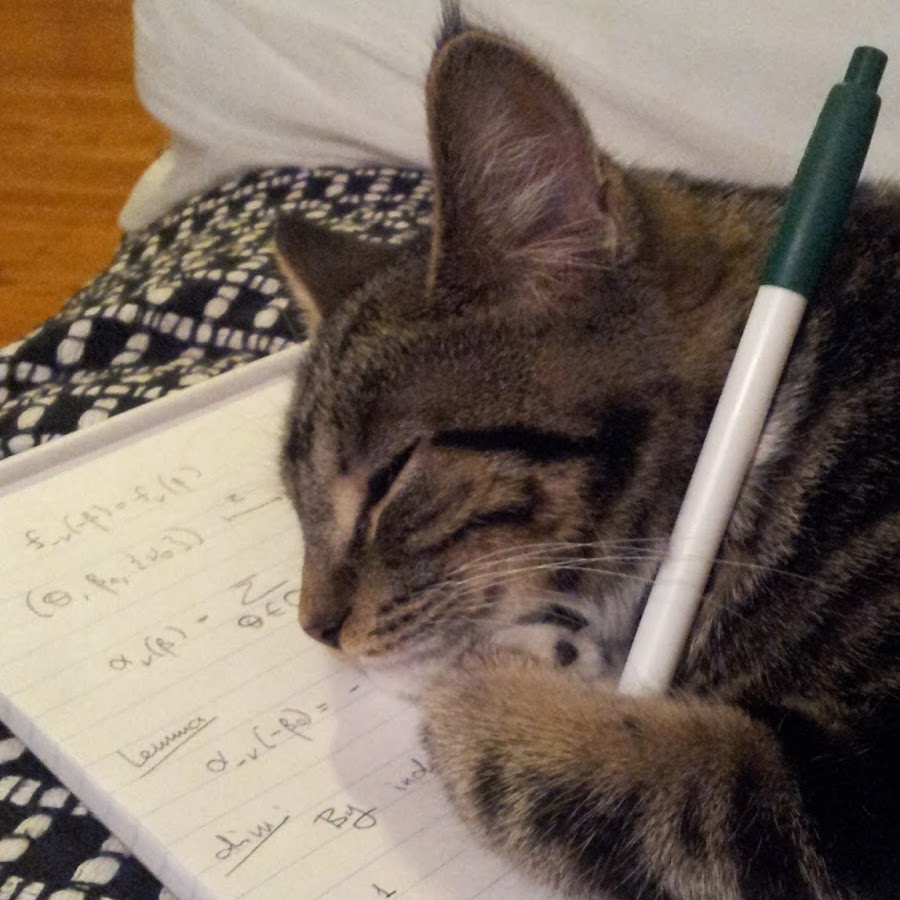 f_{-v}(-β) = f_v(β)
(θ, β_0, {v_0})
α_v(β) = Σ_{θ∈
Lemma
α_{-v}(-β_0) = -
dim
By ind
1